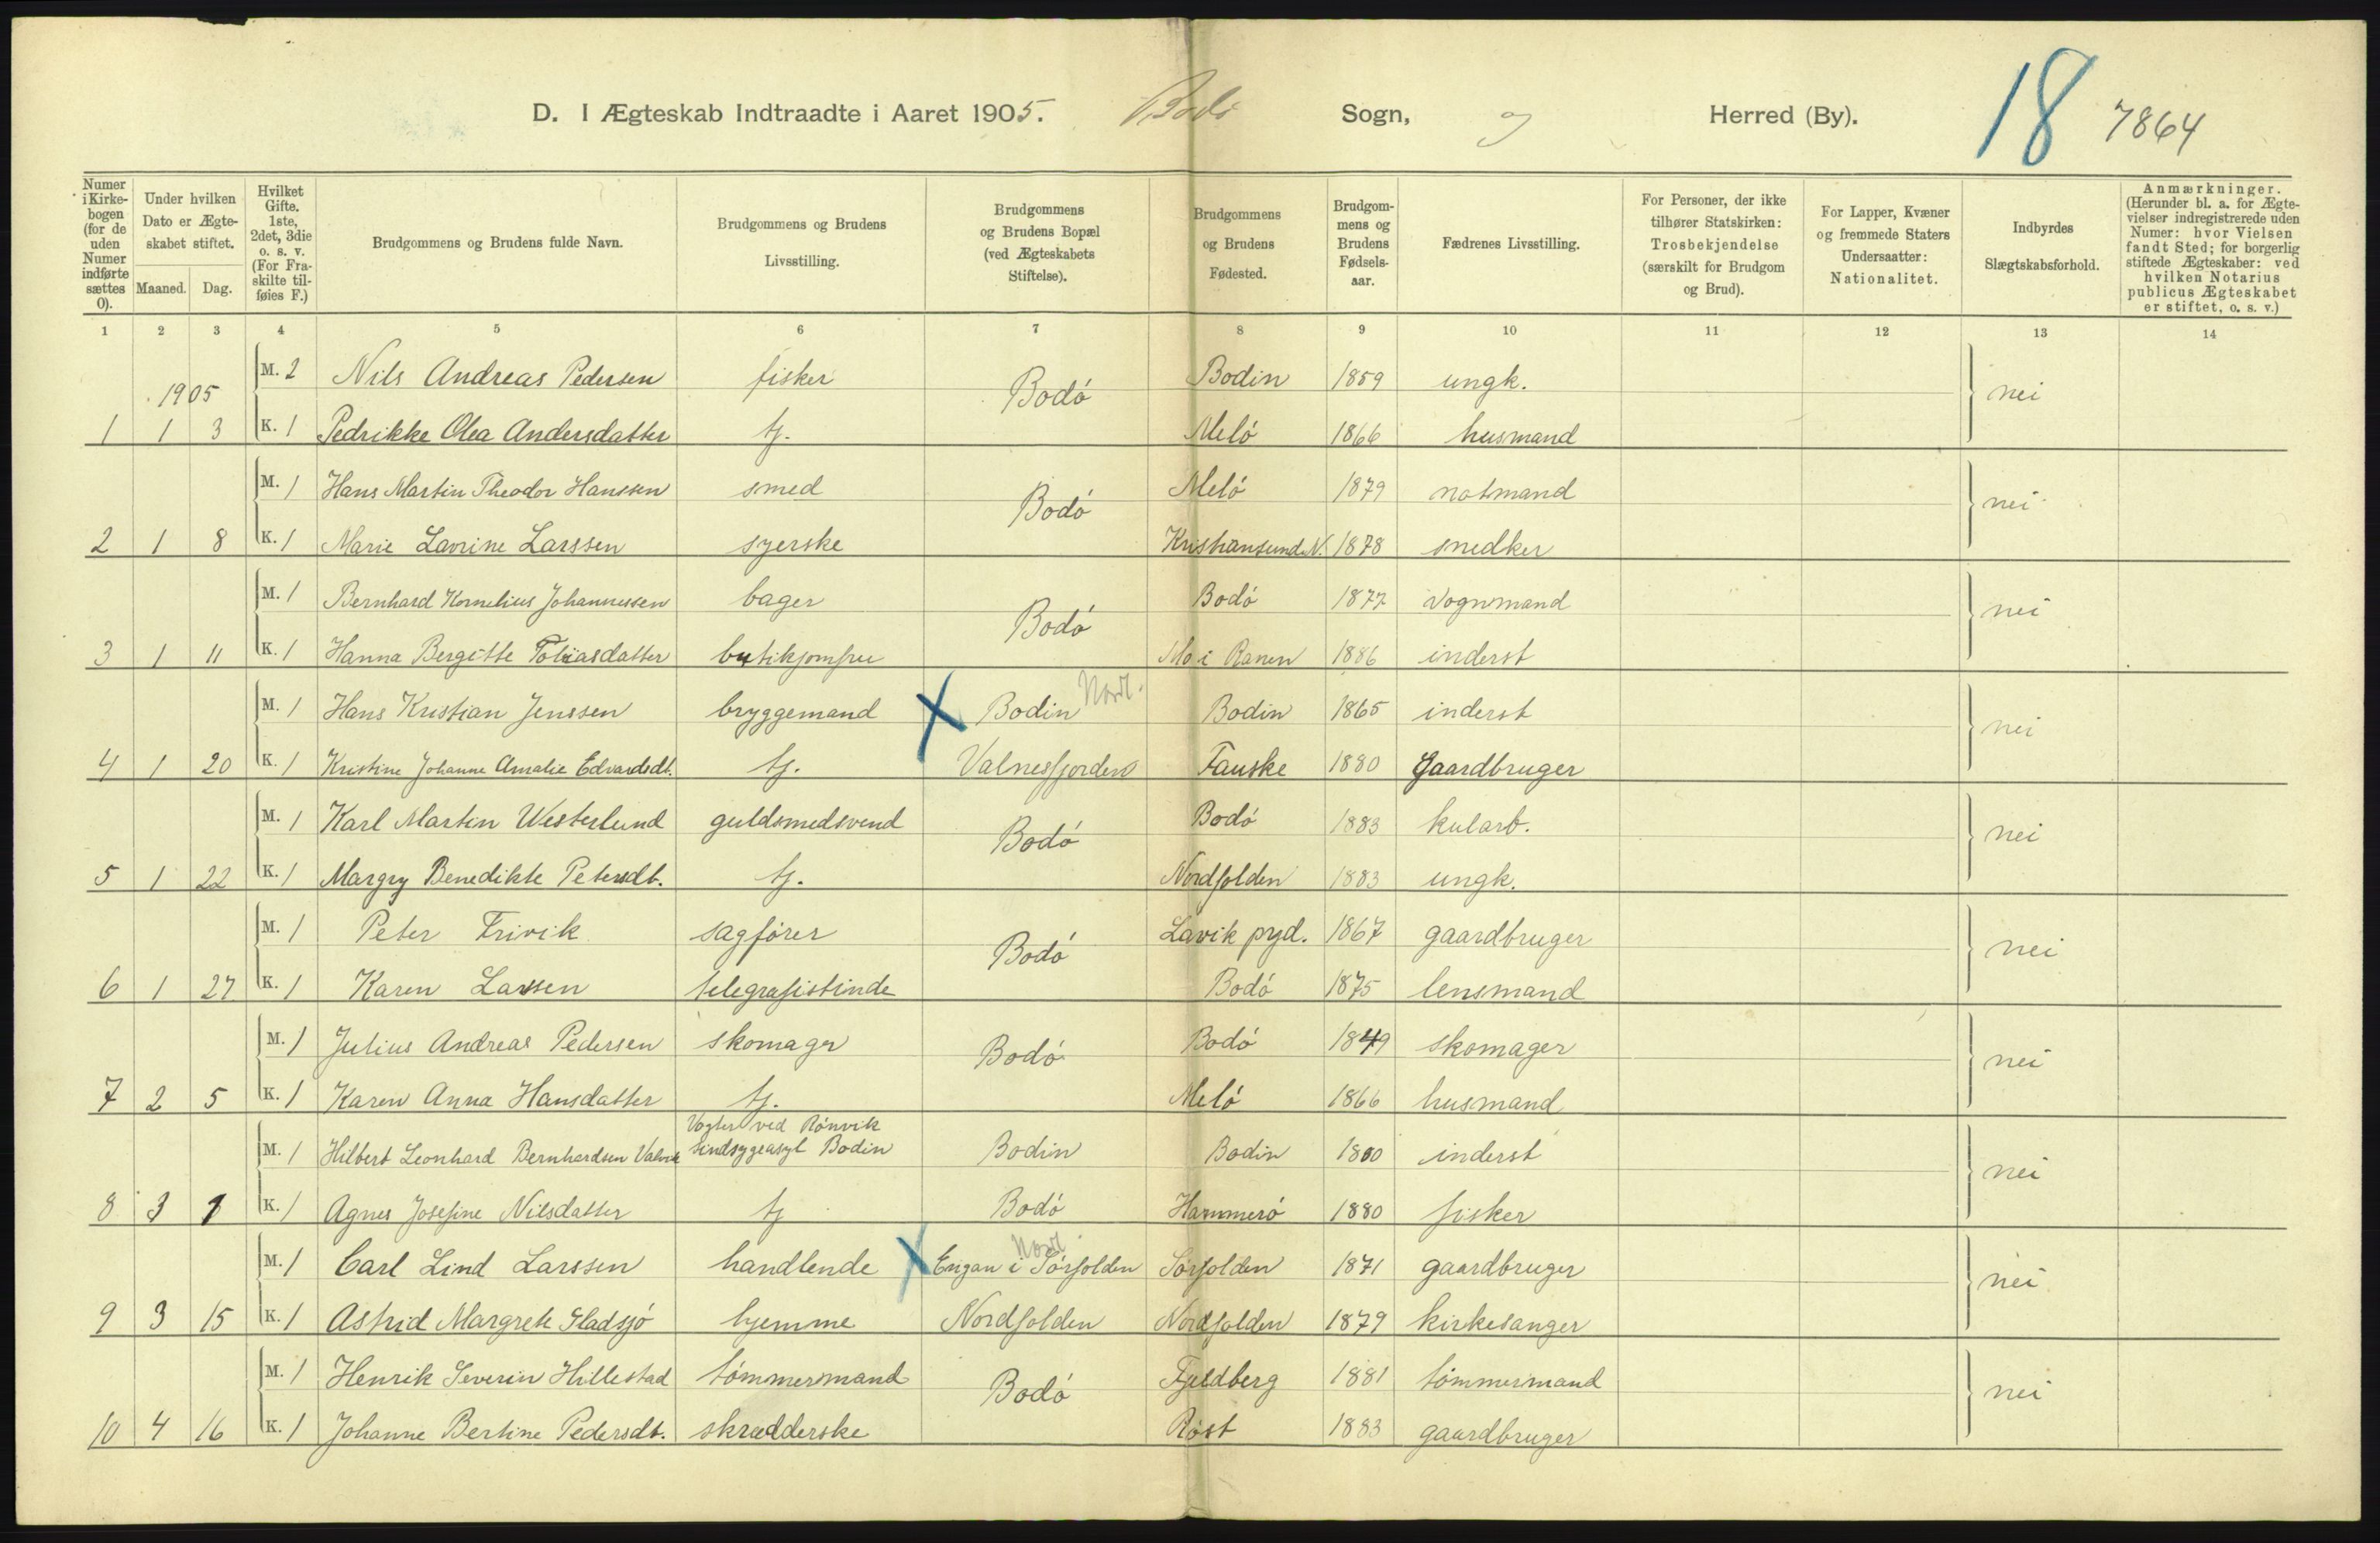 D. I Ægteskab Indtraadte i Aaret 1905. Bodø Sogn, Herred (By). 18 7864
Numer i Kirkebogen (for de uden Numer indførte sættes 0).
Under hvilken Dato er Ægteskabet stiftet.
Maaned. Dag.
Hvilket Gifte. 1ste, 2det, 3die o. s. v. (For Fraskilte tilføies F.)
Brudgommens og Brudens fulde Navn.
Brudgommens og Brudens Livsstilling.
Brudgommens og Brudens Bopæl (ved Ægteskabets Stiftelse).
Brudgommens og Brudens Fødested.
Brudgommens og Brudens Fødselsaar.
Fædrenes Livsstilling.
For Personer, der ikke tilhører Statskirken: Trosbekjendelse (særskilt for Brudgom og Brud).
For Lapper, Kvæner og fremmede Staters Undersaatter: Nationalitet.
Indbyrdes Slægtskabsforhold.
Anmærkninger. (Herunder bl. a. for Ægtevielser indregistrerede uden Numer: hvor Vielsen fandt Sted; for borgerlig stiftede Ægteskaber: ved hvilken Notarius publicus Ægteskabet er stiftet, o. s. v.)
1 2 3 4 5 6 7 8 9 10 11 12 13 14
M. 2 Nils Andreas Pedersen fisker Bodø Bodin 1859 ungk. nei
1905
1 1 3 K. 1 Pedrikke Olea Andersdatter tj. Melø 1866 husmand
M. 1 Hans Martin Theodor Hanssen smed Bodø Melø 1879 notmand nei
2 1 8 K. 1 Marie Lavrine Larssen syerske Kristiansund N. 1878 snedker
M. 1 Bernhard Kornelius Johannessen bager Bodø Bodø 1877 vognmand nei
3 1 11 K. 1 Hanna Bergitte Tobiasdatter butikjomfru Mo i Ranen 1886 inderst
M. 1 Hans Kristian Jenssen bryggemand X Bodin Nordl. Bodin 1865 inderst nei
4 1 20 K. 1 Kristine Johanne Amalie Edvardsdt. tj. Valnesfjorden Fauske 1880 Gaardbruger
M. 1 Karl Martin Westerlund guldsmedsvend Bodø Bodø 1883 kularb. nei
5 1 22 K. 1 Margry Benedikte Petersdt. tj. Nordfolden 1883 ungk.
M. 1 Peter Trivik sagfører Bodø Lavik pgd. 1867 gaardbruger nei
6 1 27 K. 1 Karen Larssen telegrafistinde Bodø 1875 lensmand
M. 1 Julius Andreas Pedersen skomager Bodø Bodø 1849 skomager nei
7 2 5 K. 1 Karen Anna Hansdatter tj. Melø 1866 husmand
Vogter ved Rønvik
M. 1 Hilbert Leonhard Bernhardsen Valvik sindsygeasyl Bodin Bodin Bodin 1880 inderst nei
8 3 1 K. 1 Agnes Josefine Nilsdatter tj Bodø Hammerø 1880 fisker
M. 1 Carl Lind Larssen handlende X Engan i Sørfolden Nordl. Sørfolden 1871 gaardbruger nei
9 3 15 K. 1 Astrid Margrete Gladsjø hjemme Nordfolden Nordfolden 1879 kirkesanger
M. 1 Henrik Severin Hillestad tømmermand Bodø Fjeldberg 1881 tømmermand nei
10 4 16 K. 1 Johanne Bertine Pedersdt. skrædderske Røst 1883 gaardbruger